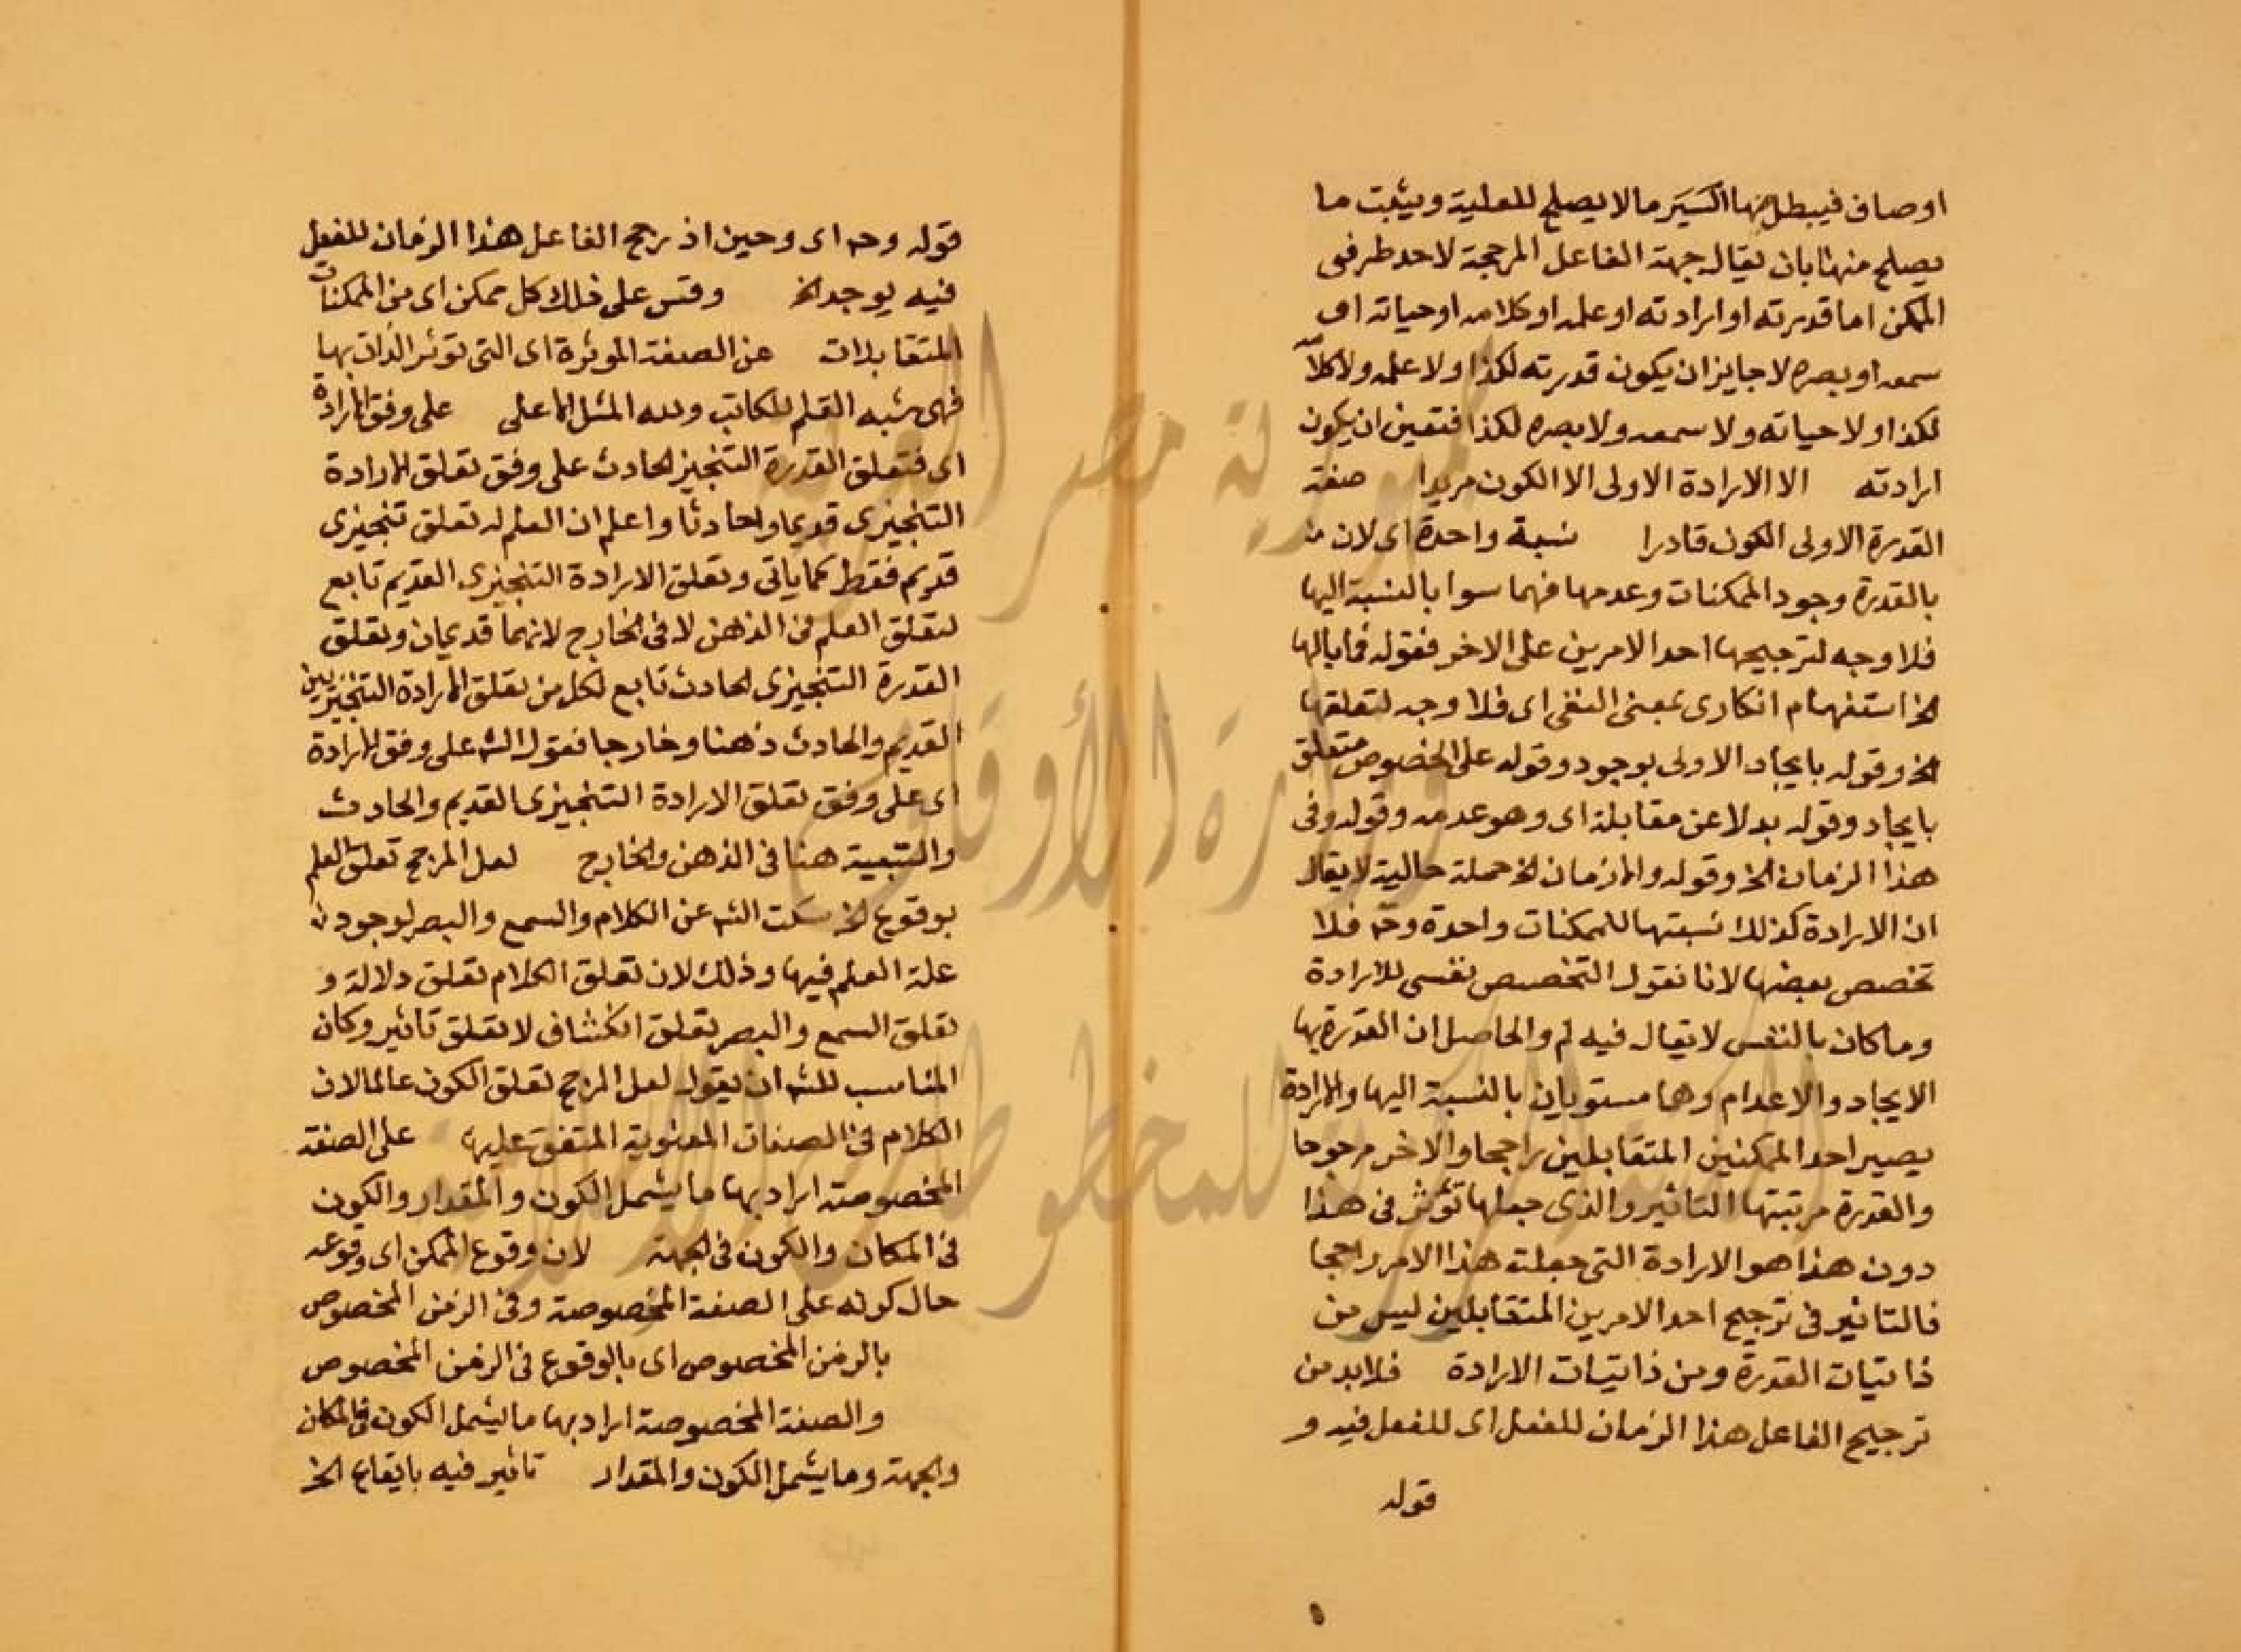 اوصاف فيبطل منها السير ما لا يصلح للعلية ويثبت ما
يصلح منها بان يقال جهة الفاعل المرجحة لاحد طرفى
الممكن اما قدرته او ارادته او علمه او كلامه او حياته او
سمعه او بصره لا جايز ان يكون قدرته لكذا ولا علمه ولا كلامه
لكذا ولا حياته ولا سمعه ولا بصره لكذا فتعين ان يكون
ارادته الا الارادة الاولى الا الكون مريدا صفة
القدرة الاولى الكون قادرا نسبة واحدة اى لان
بالقدرة وجود الممكنات وعدمها فهما سوا بالنسبة اليها
فلا وجه لترجيحها احد الامرين على الاخر فقوله فما بالها
الخ استفهام انكارى بمعنى النفى اى فلا وجه لتعلقها
الخ وقوله بايجاد الاولى بوجود وقوله على الخصوص متعلق
بايجاد وقوله بدلا عن مقابلة اى وهو عدمه وقوله وفى
هذا الزمان الخ وقوله والازمان الخ جملة حالية لا يقال
ان الارادة كذلك نسبتها للممكنات واحدة وح فلا
تخصص بعضها لانا نقول التخصيص نفسى للارادة
وما كان بالنفس لا يقال فيه لم والحاصل ان القدرة بها
الايجاد والاعدام وهما مستويان بالنسبة اليها والارادة
يصير احد الممكنين المتقابلين راجحا والاخر مرجوحا
والقدرة مرتبتها التاثير والذى جعلها تؤثر فى هذا
دون هذا هو الارادة التى جعلت هذا الامر راجحا
فالتاثير فى ترجيح احد الامرين المتقابلين ليس من
ذاتيات القدرة ومن ذاتيات الارادة فلابد من
ترجيح الفاعل هذا الزمان للفعل اى للفعل فيه و
قوله
قوله وح اى وحين اذ رجح الفاعل هذا الزمان للفعل
فيه يوجد الخ وقس على ذلك كل ممكن اى من الممكنات
المتقابلات عن الصفة الموثرة اى التى توثر الذات بها
فهى شبه القلم للكاتب ولله المثل الاعلى على وفق الارادة
اى فتعلق القدرة التنجيز الحادث على وفق تعلق الارادة
التنجيزى قديما وحادثا واعلم ان العلم له تعلق تنجيزى
قديم فقط كما ياتى وتعلق الارادة التنجيزى القديم تابع
لتعلق العلم فى الذهن لا فى الخارج لانهما قديمان وتعلق
القدرة التنجيزى الحادث تابع لكل من تعلق الارادة التنجيزيين
القديم والحادث ذهنا وخارجا فقول الش على وفق الارادة
اى على وفق تعلق الارادة التنجيزى القديم والحادث
والتبعية هنا فى الذهن والخارج لعل المرجح تعلق العلم
بوقوع الخ سكت الش عن الكلام والسمع والبصر لوجود
علة العلم فيها وذلك لان تعلق الكلام تعلق دلالة و
تعلق السمع والبصر تعلق انكشاف لا تعلق تاثير وكان
المناسب للش ان يقول لعل المرجح تعلق الكون عالما لان
الكلام فى الصفات المعنوية المتفق عليها على الصفة
المخصوصة اراد بها ما يشمل الكون والمقدار والكون
فى المكان والكون فى الجهة لان وقوع الممكن اى وقوعه
حال كونه على الصفة المخصوصة وفى الزمن المخصوص
بالزمن المخصوص اى بالوقوع فى الزمن المخصوص
والصفة المخصوصة اراد بها ما يشمل الكون فى المكان
والجهة وما يشمل الكون والمقدار تاثير فيه بايقاع الخ
جمهورية مصر العربية
وزارة الأوقاف
المكتبة المركزية للمخطوطات الإسلامية